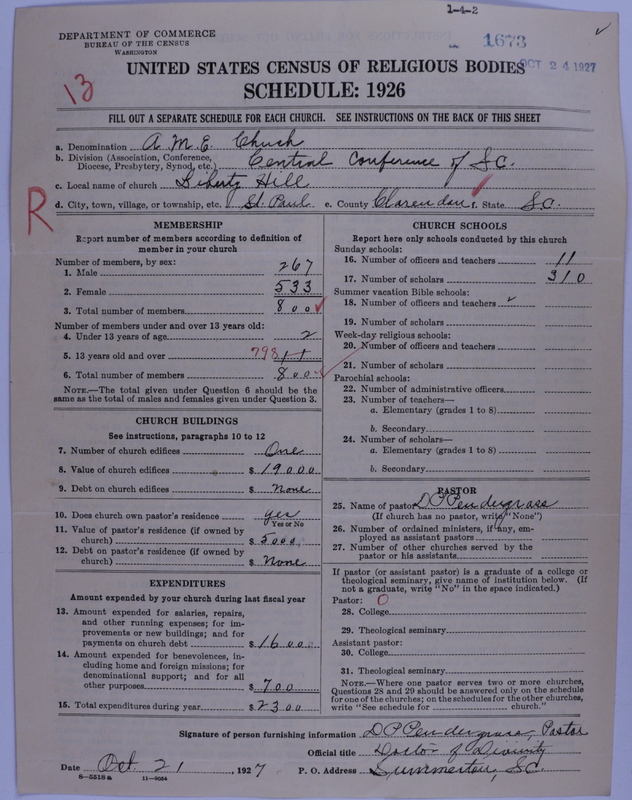 1-4-2
DEPARTMENT OF COMMERCE
BUREAU OF THE CENSUS
WASHINGTON
1673
OCT 24 1927
UNITED STATES CENSUS OF RELIGIOUS BODIES
SCHEDULE: 1926
13
FILL OUT A SEPARATE SCHEDULE FOR EACH CHURCH. SEE INSTRUCTIONS ON THE BACK OF THIS SHEET
a. Denomination A. M. E. Church
b. Division (Association, Conference, Diocese, Presbytery, Synod, etc.) Central Conference of S.C.
c. Local name of church Liberty Hill
R
d. City, town, village, or township, etc. St. Paul e. County Clarendon f. State S.C.
MEMBERSHIP
Report number of members according to definition of
member in your church
Number of members, by sex:
1. Male 267
2. Female 533
3. Total number of members 800
Number of members under and over 13 years old:
4. Under 13 years of age 2
5. 13 years old and over 798
6. Total number of members 800
NOTE.—The total given under Question 6 should be
same as the total of males and females given under Question 3.
CHURCH BUILDINGS
See instructions, paragraphs 10 to 12
7. Number of church edifices One
8. Value of church edifices $ 19000
9. Debt on church edifices $ None
10. Does church own pastor's residence yes
Yes or No
11. Value of pastor's residence (if owned by
church) $ 5000
12. Debt on pastor's residence (if owned by
church) $ None
EXPENDITURES
Amount expended by your church during last fiscal year
13. Amount expended for salaries, repairs,
and other running expenses; for im-
provements or new buildings; and for
payments on church debt $ 1600
14. Amount expended for benevolences, in-
cluding home and foreign missions; for
denominational support; and for all
other purposes $ 700
15. Total expenditures during year $ 2300
CHURCH SCHOOLS
Report here only schools conducted by this church
Sunday schools:
16. Number of officers and teachers 11
17. Number of scholars 310
Summer vacation Bible schools:
18. Number of officers and teachers
19. Number of scholars
Week-day religious schools:
20. Number of officers and teachers
21. Number of scholars
Parochial schools:
22. Number of administrative officers
23. Number of teachers—
a. Elementary (grades 1 to 8)
b. Secondary
24. Number of scholars—
a. Elementary (grades 1 to 8)
b. Secondary
PASTOR
25. Name of pastor D P Pendergrass
(If church has no pastor, write "None")
26. Number of ordained ministers, if any, em-
ployed as assistant pastors
27. Number of other churches served by the
pastor or his assistants
If pastor (or assistant pastor) is a graduate of a college or
theological seminary, give name of institution below. (If
not a graduate, write "No" in the space indicated.)
Pastor: 0
28. College
29. Theological seminary
Assistant pastor:
30. College
31. Theological seminary
NOTE.—Where one pastor serves two or more churches,
Questions 28 and 29 should be answered only on the schedule
for one of the churches; on the schedules for the other churches,
write "See schedule for church."
Signature of person furnishing information D P Pendergrass, Pastor
Official title Doctor of Divinity
Date Oct. 21, 1927 P. O. Address Summerton, S.C.
8-5518a 11-9054